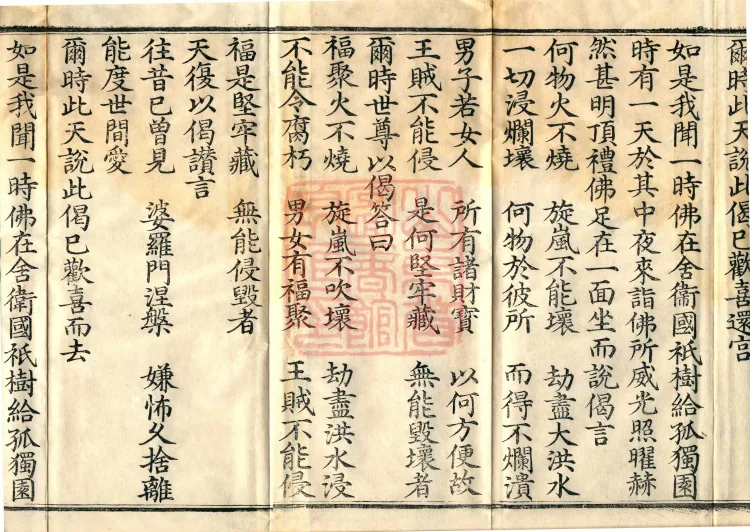 爾時此天說此偈已歡喜還宮
如是我聞一時佛在舍衞國祇樹給孤獨園
時有一天於其中夜來詣佛所威光照曜赫
然甚明頂禮佛足在一面坐而說偈言
何物火不燒 旋嵐不能壞 劫盡大洪水
一切浸爛壞 何物於彼所 而得不爛潰
男子若女人 所有諸財寶 以何方便故
王賊不能侵 是何堅牢藏 無能毀壞者
爾時世尊以偈答曰
福聚火不燒 旋嵐不吹壞 劫盡洪水浸
不能令腐朽 男女有福聚 王賊不能侵
福是堅牢藏 無能侵毀者
天復以偈讚言
往昔已曾見 婆羅門涅槃 嫌怖久捨離
能度世間愛
爾時此天說此偈已歡喜而去
如是我聞一時佛在舍衛國祇樹給孤獨園